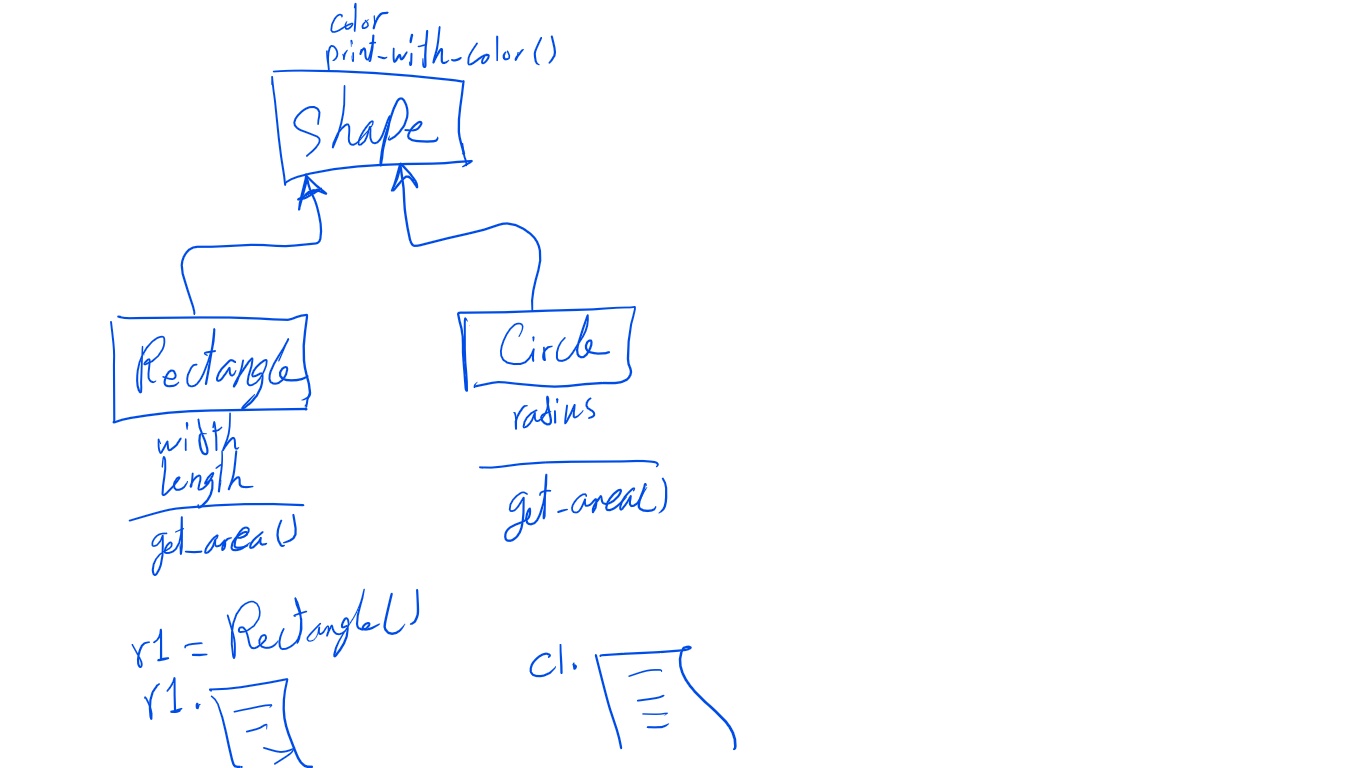 color
print_with_color()
Shape
Rectangle
width
length
get_area()
Circle
radius
get_area()
r1 = Rectangle()
r1.
c1.